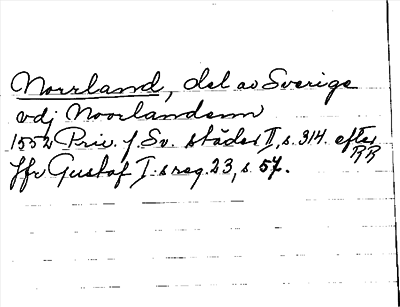 Norrland, del av Sverige
vdj Noorlandenn
1552 Priv. f. Sv. städer II, s. 314. efter RR
Jfr Gustaf I:s reg. 23, s. 57.